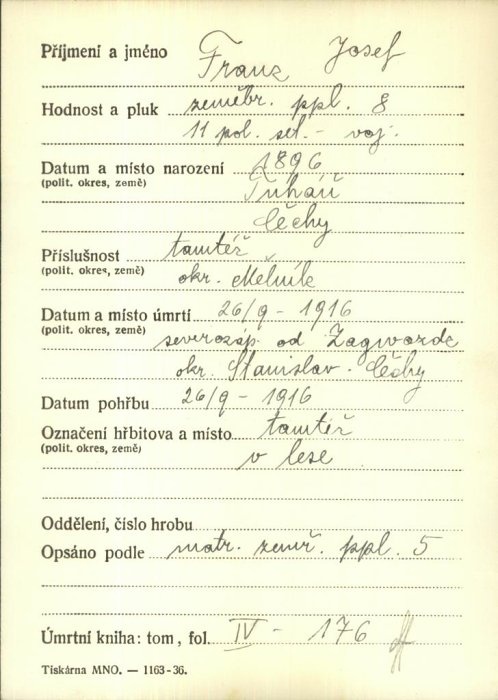 Příjmení a jméno Franz Josef
Hodnost a pluk zeměbr. ppl. 8
11 pol. set. - voj.
Datum a místo narození 1896
(polit. okres, země) Tuháň
Čechy
Příslušnost tamtéž
(polit. okres, země) okr. Mělník
Datum a místo úmrtí 26/9 - 1916
(polit. okres, země) severozáp od Zagwozde
okr. Stanislav. Čechy
Datum pohřbu 26/9 - 1916
Označení hřbitova a místo tamtéž
(polit. okres, země) v lese
Oddělení, číslo hrobu
Opsáno podle matr. zemř. ppl. 5
Úmrtní kniha: tom, fol. IV - 176
Tiskárna MNO. — 1163-36.